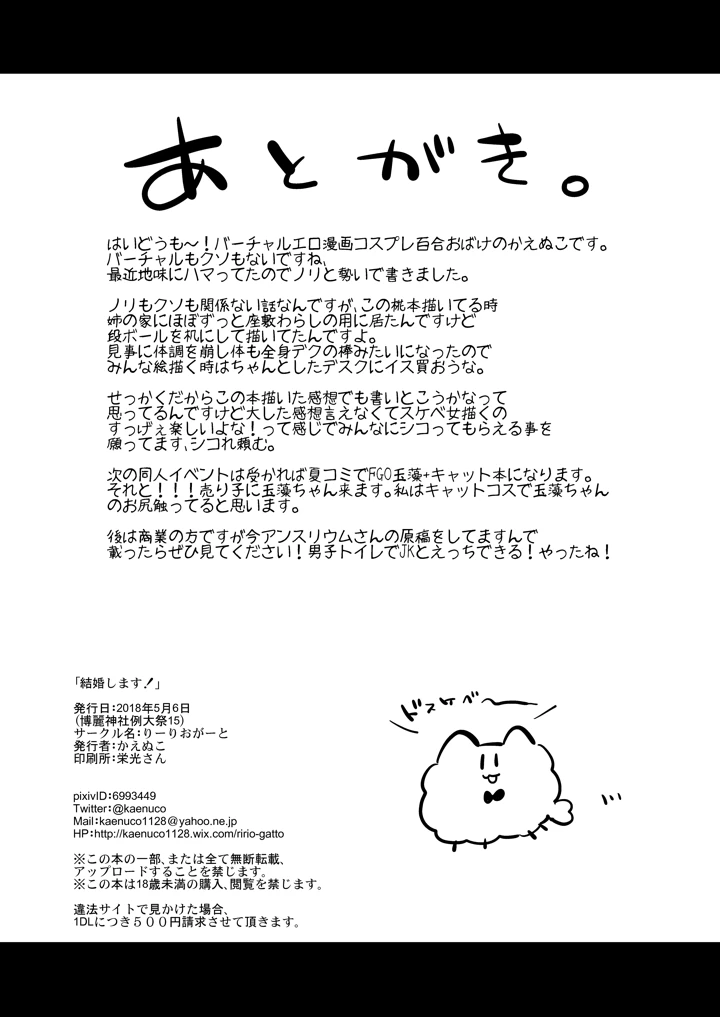 あとがき。
はいどうも～！バーチャルエロ漫画コスプレ百合おばけのかえぬこです。
バーチャルもクソもないですね、
最近地味にハマってたのでノリと勢いで書きました。
ノリもクソも関係ない話なんですが、この桃本描いてる時
姉の家にほぼずっと座敷わらしの用に居たんですけど
段ボールを机にして描いてたんですよ。
見事に体調を崩し体も全身デクの棒みたいになったので
みんな絵描く時はちゃんとしたデスクにイス買おうな。
せっかくだからこの本描いた感想でも書いとこうかなって
思ってるんですけど大した感想言えなくてスケベ女描くの
すっげぇ楽しいよな！って感じでみんなにシコってもらえる事を
願ってます、シコれ頼む。
次の同人イベントは受かれば夏コミでFGO玉藻+キャット本になります。
それと！！！売り子に玉藻ちゃん来ます。私はキャットコスで玉藻ちゃん
のお尻触ってると思います。
後は商業の方ですが今アンスリウムさんの原稿をしてますんで
載ったらぜひ見てください！男子トイレでJKとえっちできる！やったね！
「結婚します！」
発行日：2018年5月6日
（博麗神社例大祭15）
サークル名：りーりおがーと
発行者：かえぬこ
印刷所：栄光さん
pixivID：6993449
Twitter：@kaenuco
Mail：kaenuco1128@yahoo.ne.jp
HP：http://kaenuco1128.wix.com/ririo-gatto
※この本の一部、または全て無断転載、
アップロードすることを禁じます。
※この本は18歳未満の購入、閲覧を禁じます。
違法サイトで見かけた場合、
1DLにつき５００円請求させて頂きます。
ドスケベ～